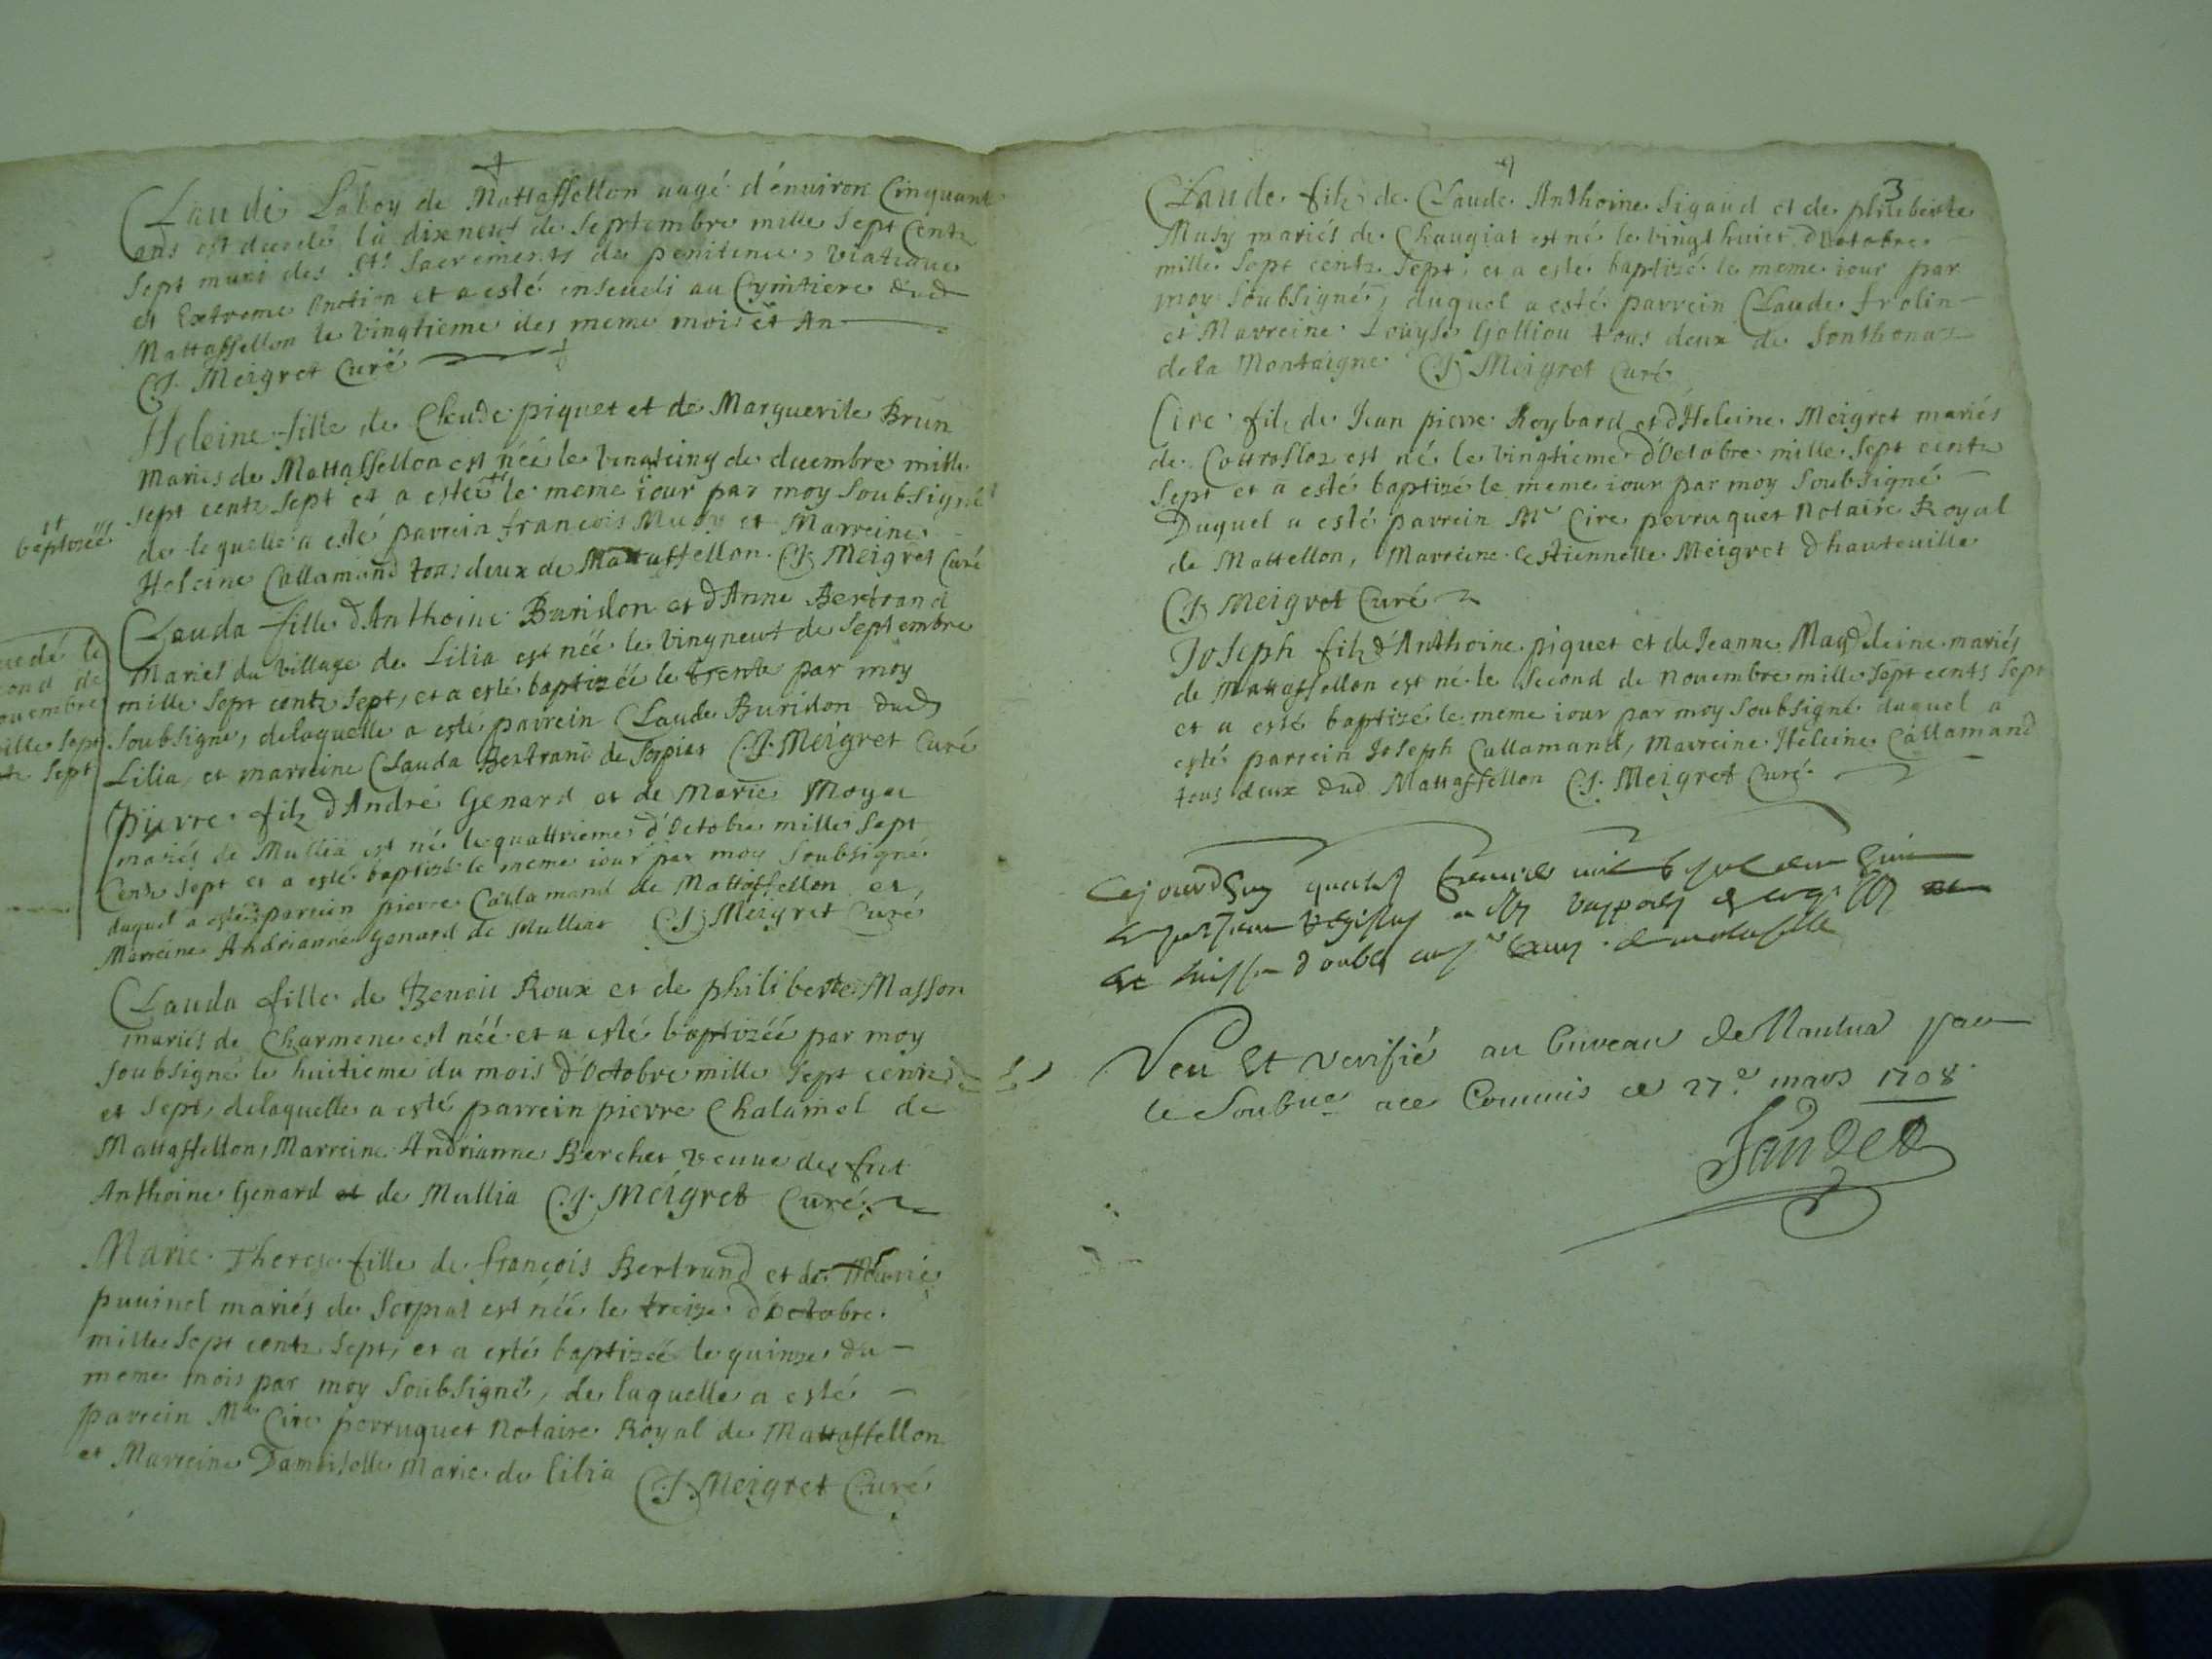 Claude Laboy de Mattaffellon aagé d'énuiron Cinquante
ans est decedé le dixneuf de Septembre mille Sept Centz
Sept muni des Sts Sacrements de penitence, viatique
et Extreme Onction et a esté enseueli au Cymitiere dud
Mattaffellon le vingtieme des meme mois et An
C.J. Meigret Curé
Heleine fille de Claude piquet et de Marguerite Brun
Mariés de Mattaffellon est néé le vingtcinq de decembre mille
Sept centz Sept et a esté le meme iour par moy Soubsigné
et
baptizéé
de lequelle a esté parrein francois Musy et Marreine
Heleine Callamand tous deux de Mattaffellon. C.J. Meigret Curé
Clauda fille d'Anthoine Buridon et d'Anne Bertrand
Mariés du village de Lilia est néé le vingneuf de Septembre
mille Sept centz Sept, et a esté baptizéé le trente par moy
Soubsigné, delaquelle a esté parrein Claude Buridon dud
Lilia, et marreine Clauda Bertrand de Serpiat C.J. Meigret Curé
decedé le
second de
nouembre
mille Sept
centz Sept
pierre filz d'André Genard et de Marie Moyat
mariés de Mullia est né le quattrieme d'Octobre mille Sept
Centz Sept et a esté baptizé le meme iour par moy Soubsigné
duquel a esté parrein pierre Callamand de Mattaffellon et,
Marreine Andrianne Genard de Mulliat C.J. Meigret Curé
Clauda fille de Benoit Roux et de philiberte Masson
mariés de Charmene est néé et a esté baptizéé par moy
Soubsigné le huitieme du mois d'Octobre mille Sept centz
et Sept, delaquelle a esté parrein pierre Chalamel de
Mattaffellon, Marreine Andrianne Berchet veuue de fut
Anthoine Genard de Mullia C.J. Meigret Curé
Marie Therese fille de francois Bertrand et de Marie
puuinel mariés de Serpiat est néé le treize d'Octobre
mille Sept centz Sept, et a esté baptizéé le quinze du
meme mois par moy Soubsigné, de laquelle a esté
parrein Me Cire perruquet Notaire Royal de Mattaffellon
et Marreine Damoiselle Marie de Lilia C.J. Meigret Curé
3
Claude filz de Claude Anthoine Sigaud et de philiberte
Musy mariés de Chaugiat est né le vingt huict d'Octobre
mille Sept centz Sept, et a esté baptizé le meme iour par
moy Soubsigné, duquel a esté parrein Claude frolin
et Marreine Louyse Golliou tous deux de Sonthonax
dela Montaigne C.J. Meigret Curé
Cire filz de Jean pierre Reybard et d'Heleine Meigret mariés
de Cottrofloz est né le vingtieme d'Octobre mille Sept centz
Sept et a esté baptizé le meme iour par moy Soubsigné
Duquel a esté parrein Me Cire perruquet Notaire Royal
de Mattellon, Marreine Estiennette Meigret d'hauteuille
C.J. Meigret Curé
Joseph filz d'Anthoine piquet et de Jeanne Magdeleine mariés
de Mattaffellon est né le Second de nouembre mille Sept cents Sept
et a esté baptizé le meme iour par moy Soubsigné duquel a
esté parrein Joseph Callamand, Marreine Heleine Callamand
tous deux dud Mattaffellon C.J. Meigret Curé
Cejourdhuy
Veu Et verifié au bureau de Nantua par
le Soubne ace Commis ce 27e mars 1708